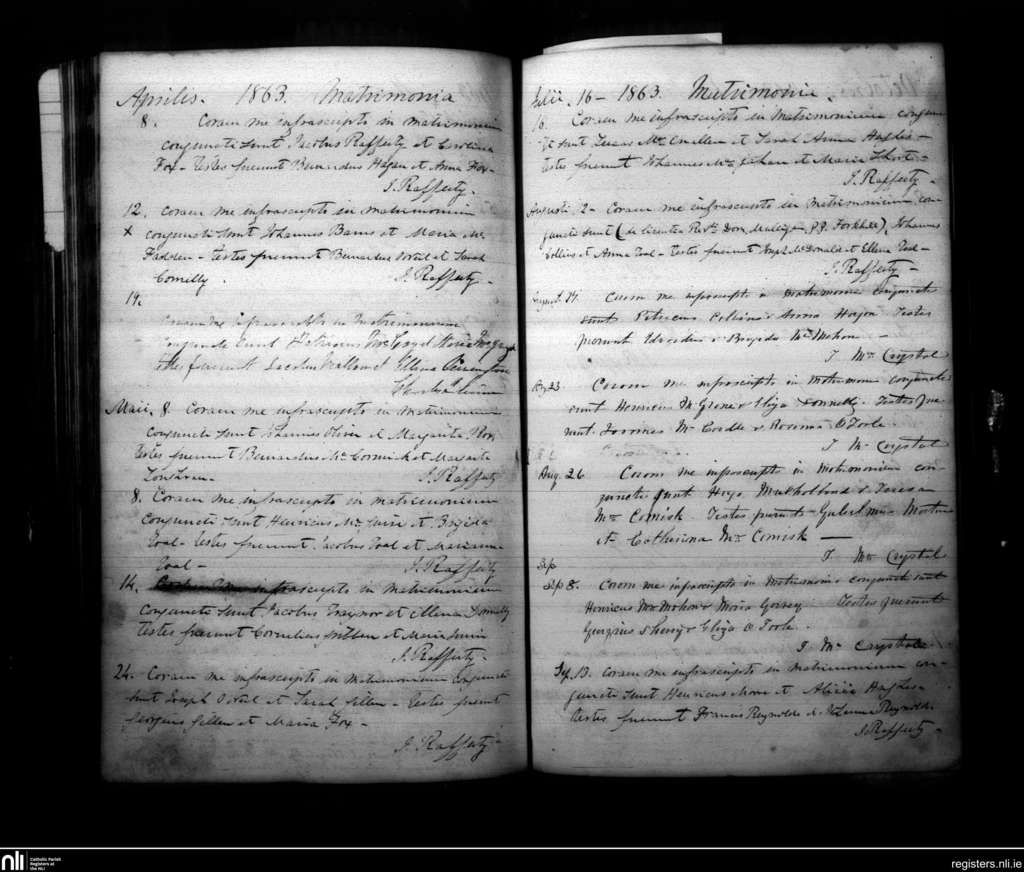 Aprilis. 1863. Matrimonia
8. Coram me infrascripto in matrimonium
conjuncti sunt Jacobus Rafferty et Carolina
Fox - Testes fuerunt Bernardus Hagan et Anna Fox -
J. Rafferty -
12. Coram me infrascripto in matrimonium
X conjuncti sunt Johannes Barns et Maria Mc
Fadden - Testes fuerunt Bernardus et Sarah
Connelly. J. Rafferty -
19.
Coram me infrascripto in matrimonium
conjuncti sunt
testes fuerunt Jacobus et Ellena
Maii. 8. Coram me infrascripto in matrimonium
conjuncti sunt Johannes Oliver et Margarita
testes fuerunt Bernardus Mc Cormick et Margarita
J. Rafferty
8. Coram me infrascripto in matrimonium
conjuncti sunt Henricus Mc Guire et Brigida
Toal - testes fuerunt Jacobus Toal et Marianna
Toal - J. Rafferty
14. infrascripto in matrimonium
conjuncti sunt Jacobus Traynor et Ellena Donnelly
testes fuerunt Cornelius et Maria
J. Rafferty -
24. Coram me infrascripto in matrimonium conjuncti
sunt Joseph et Sarah Gillen - testes fuerunt
Georgius Gillen et Maria Fox -
J. Rafferty -
Julii. 16 - 1863. Matrimonia.
16. Coram me infrascripto in Matrimonium conjunc
ti sunt Mc et Sarah Anna Hughes -
testes fuerunt Johannes Mc et Maria Short -
J. Rafferty -
Augusti 2 - Coram me infrascripto in Matrimonium con
juncti sunt (de licentia Revd. Dom. Mulligan P.P. Forkhill) Johannes
Collins et Anna Toal - testes fuerunt Joseph McDonald et Ellena Toal -
J. Rafferty -
August 17. Coram me infrascripto in matrimonio conjuncti
sunt Patricius & Anna Testes
fuerunt & Brigida McMahon. -
T Mc Crystal
Aug 23. Coram me infrascripto in Matrimonio conjuncti
sunt Henricus McGrone & Eliza Donnelly. Testes fue
runt Mc & Rosanna O'Toole.
T Mc Crystal
Aug. 26 Coram me infrascripto in Matrimonium con
juncti sunt Hugo Mulholland & Teresa
Mc Comisk. Testes fuerunt Martin
et Catherina Mc Comisk —
T. Mc Crystal
Sep
Sep 8. Coram me infrascripto in Matrimonio conjuncti sunt
Henricus McMahon & Maria Testes fuerunt
Georgius Sherry & Eliza O Toole.
T Mc Crystal
Sep. 13. Coram me infrascripto in matrimonium con
juncti sunt Henricus et Alicia Hughes -
testes fuerunt Francis Reynolds & Reynolds.
J. Rafferty -
nli Catholic Parish
Registers at
the NLI
registers.nli.ie